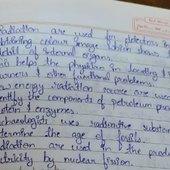 Radiation are used by detectors in
obtaining colour image which shows
detail of internal organs.
his helps the physician in locating
tumours & other functional problems.
ow energy radiation source are used
entify the components of petroleum
otein & enzymes.
rchaeologist uses radioactive substanc
etermine the age of fossils.
adiation are used in the produc
ctricity by nuclear fission.